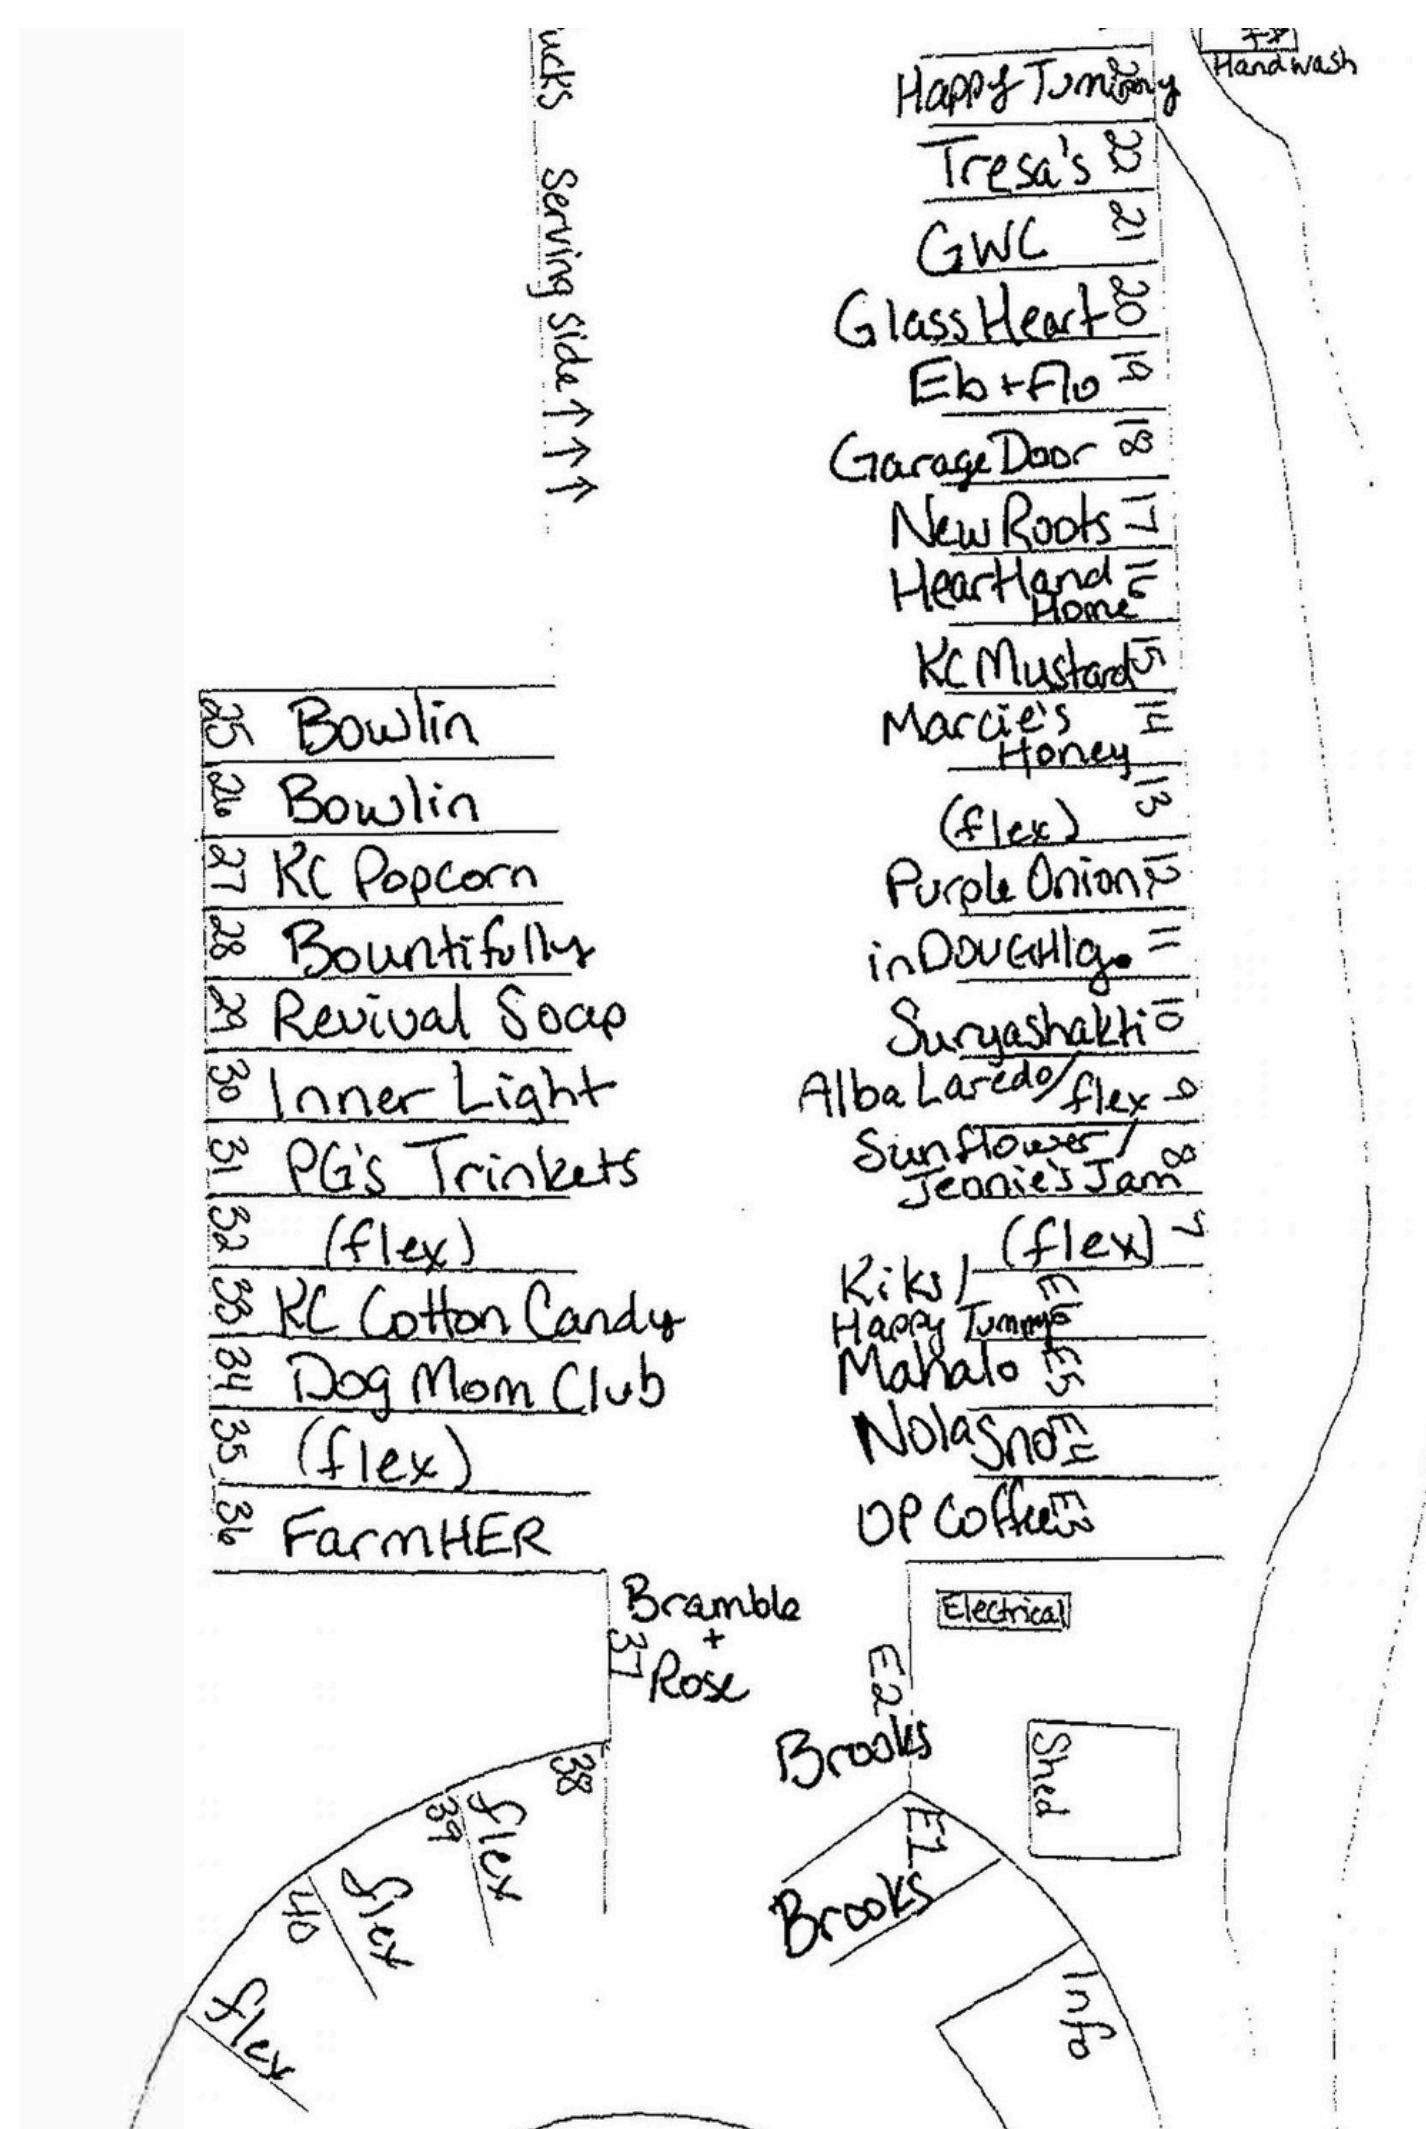 Handwash
Happy Tummy
Tresa's 22
GWC 21
Glass Heart 20
Eb + Flo 19
Garage Door 18
New Roots 17
Heartland 16
Home
KC Mustard 15
Marcie's 14
Honey
(flex) 13
Purple Onion 12
inDOUGHlg. 11
Suryashakti 10
Alba Laredo/flex 9
Sunflower/
Jeanie's Jam 8
(flex) 7
Kiks/
Happy Tummy E6
Mahalo E5
Nola Sno E4
OP Coffee E3
Serving side ↑ ↑ ↑
25 Bowlin
26 Bowlin
27 KC Popcorn
28 Bountifully
29 Revival Soap
30 Inner Light
31 PG's Trinkets
32 (flex)
33 KC Cotton Candy
34 Dog Mom Club
35 (flex)
36 FarmHER
Bramble
+
37 Rose
Electrical
E2
Brooks
Shed
E1
Brooks
Info
38
flex
39
flex
40
flex